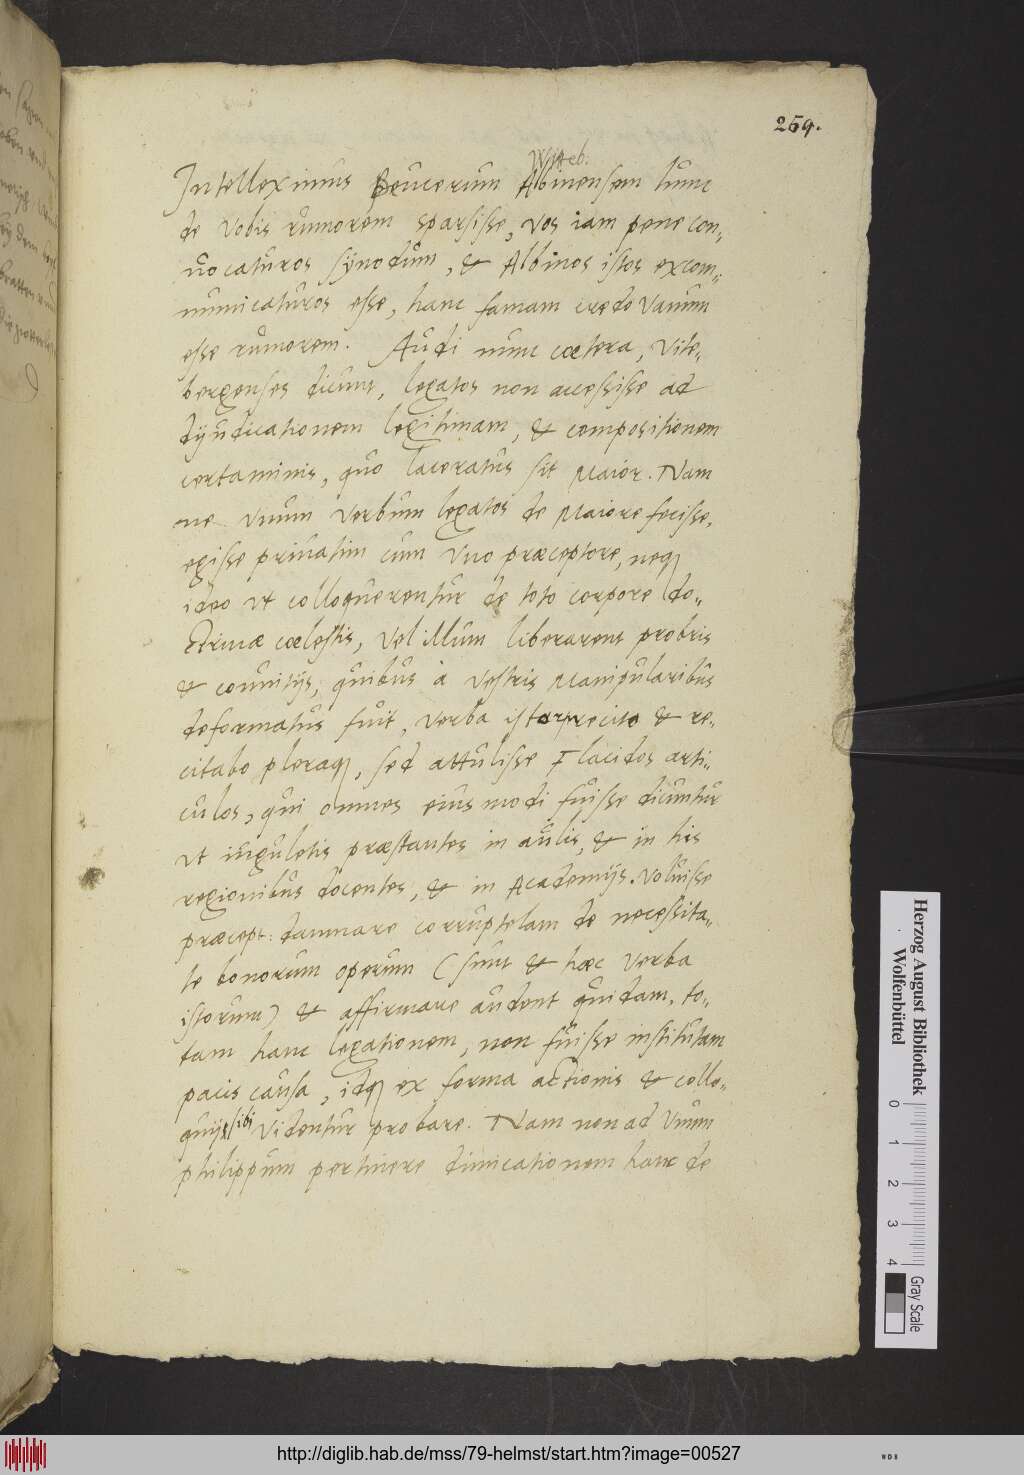 259.
Witeb.
Intelleximus Peucerum Albinensem hunc
de vobis rumorem sparsisse, vos iam pene con„
uocaturos synodum, & Albinos istos excom„
municaturos esse, hanc famam credo vanum
esse rumorem. Audi nunc cætera, Vite„
bergenses dicunt, legatos non accessisse ad
dyudicationem legitimam, & compositionem
certaminis, quo laceratus sit Maior. Nam
ne vnum verbum legatos de Maiore fecisse,
egisse priuatim cum vno præceptore, neq
ideo vt colloquerentur de toto corpore do„
ctrinæ cœlestis, vel illum liberarent probris
& conuitijs, quibus à vestris Manipularibus
deformatus fuit, verba recito & re„
citabo pleraq, sed attulisse Flacidos arti„
culos, qui omnes eiusmodi fuisse dicuntur
vt iuguletis præstantes in aulis, & in his
regionibus docentes, & in Academijs. Voluisse
præcept: damnare corruptelam de necessita„
te bonorum operum (sunt & hæc verba
istorum) & affirmare audent quidam, to„
tam hanc legationem, non fuisse institutam
pacis causa, idq ex forma actionis & collo„
quij sibi videntur probare. Nam non ad vnum
philippum pertinere dimicationem hanc de
Herzog August Bibliothek
Wolfenbüttel
0 1 2 3 4
Gray Scale
http://diglib.hab.de/mss/79-helmst/start.htm?image=00527
WDB